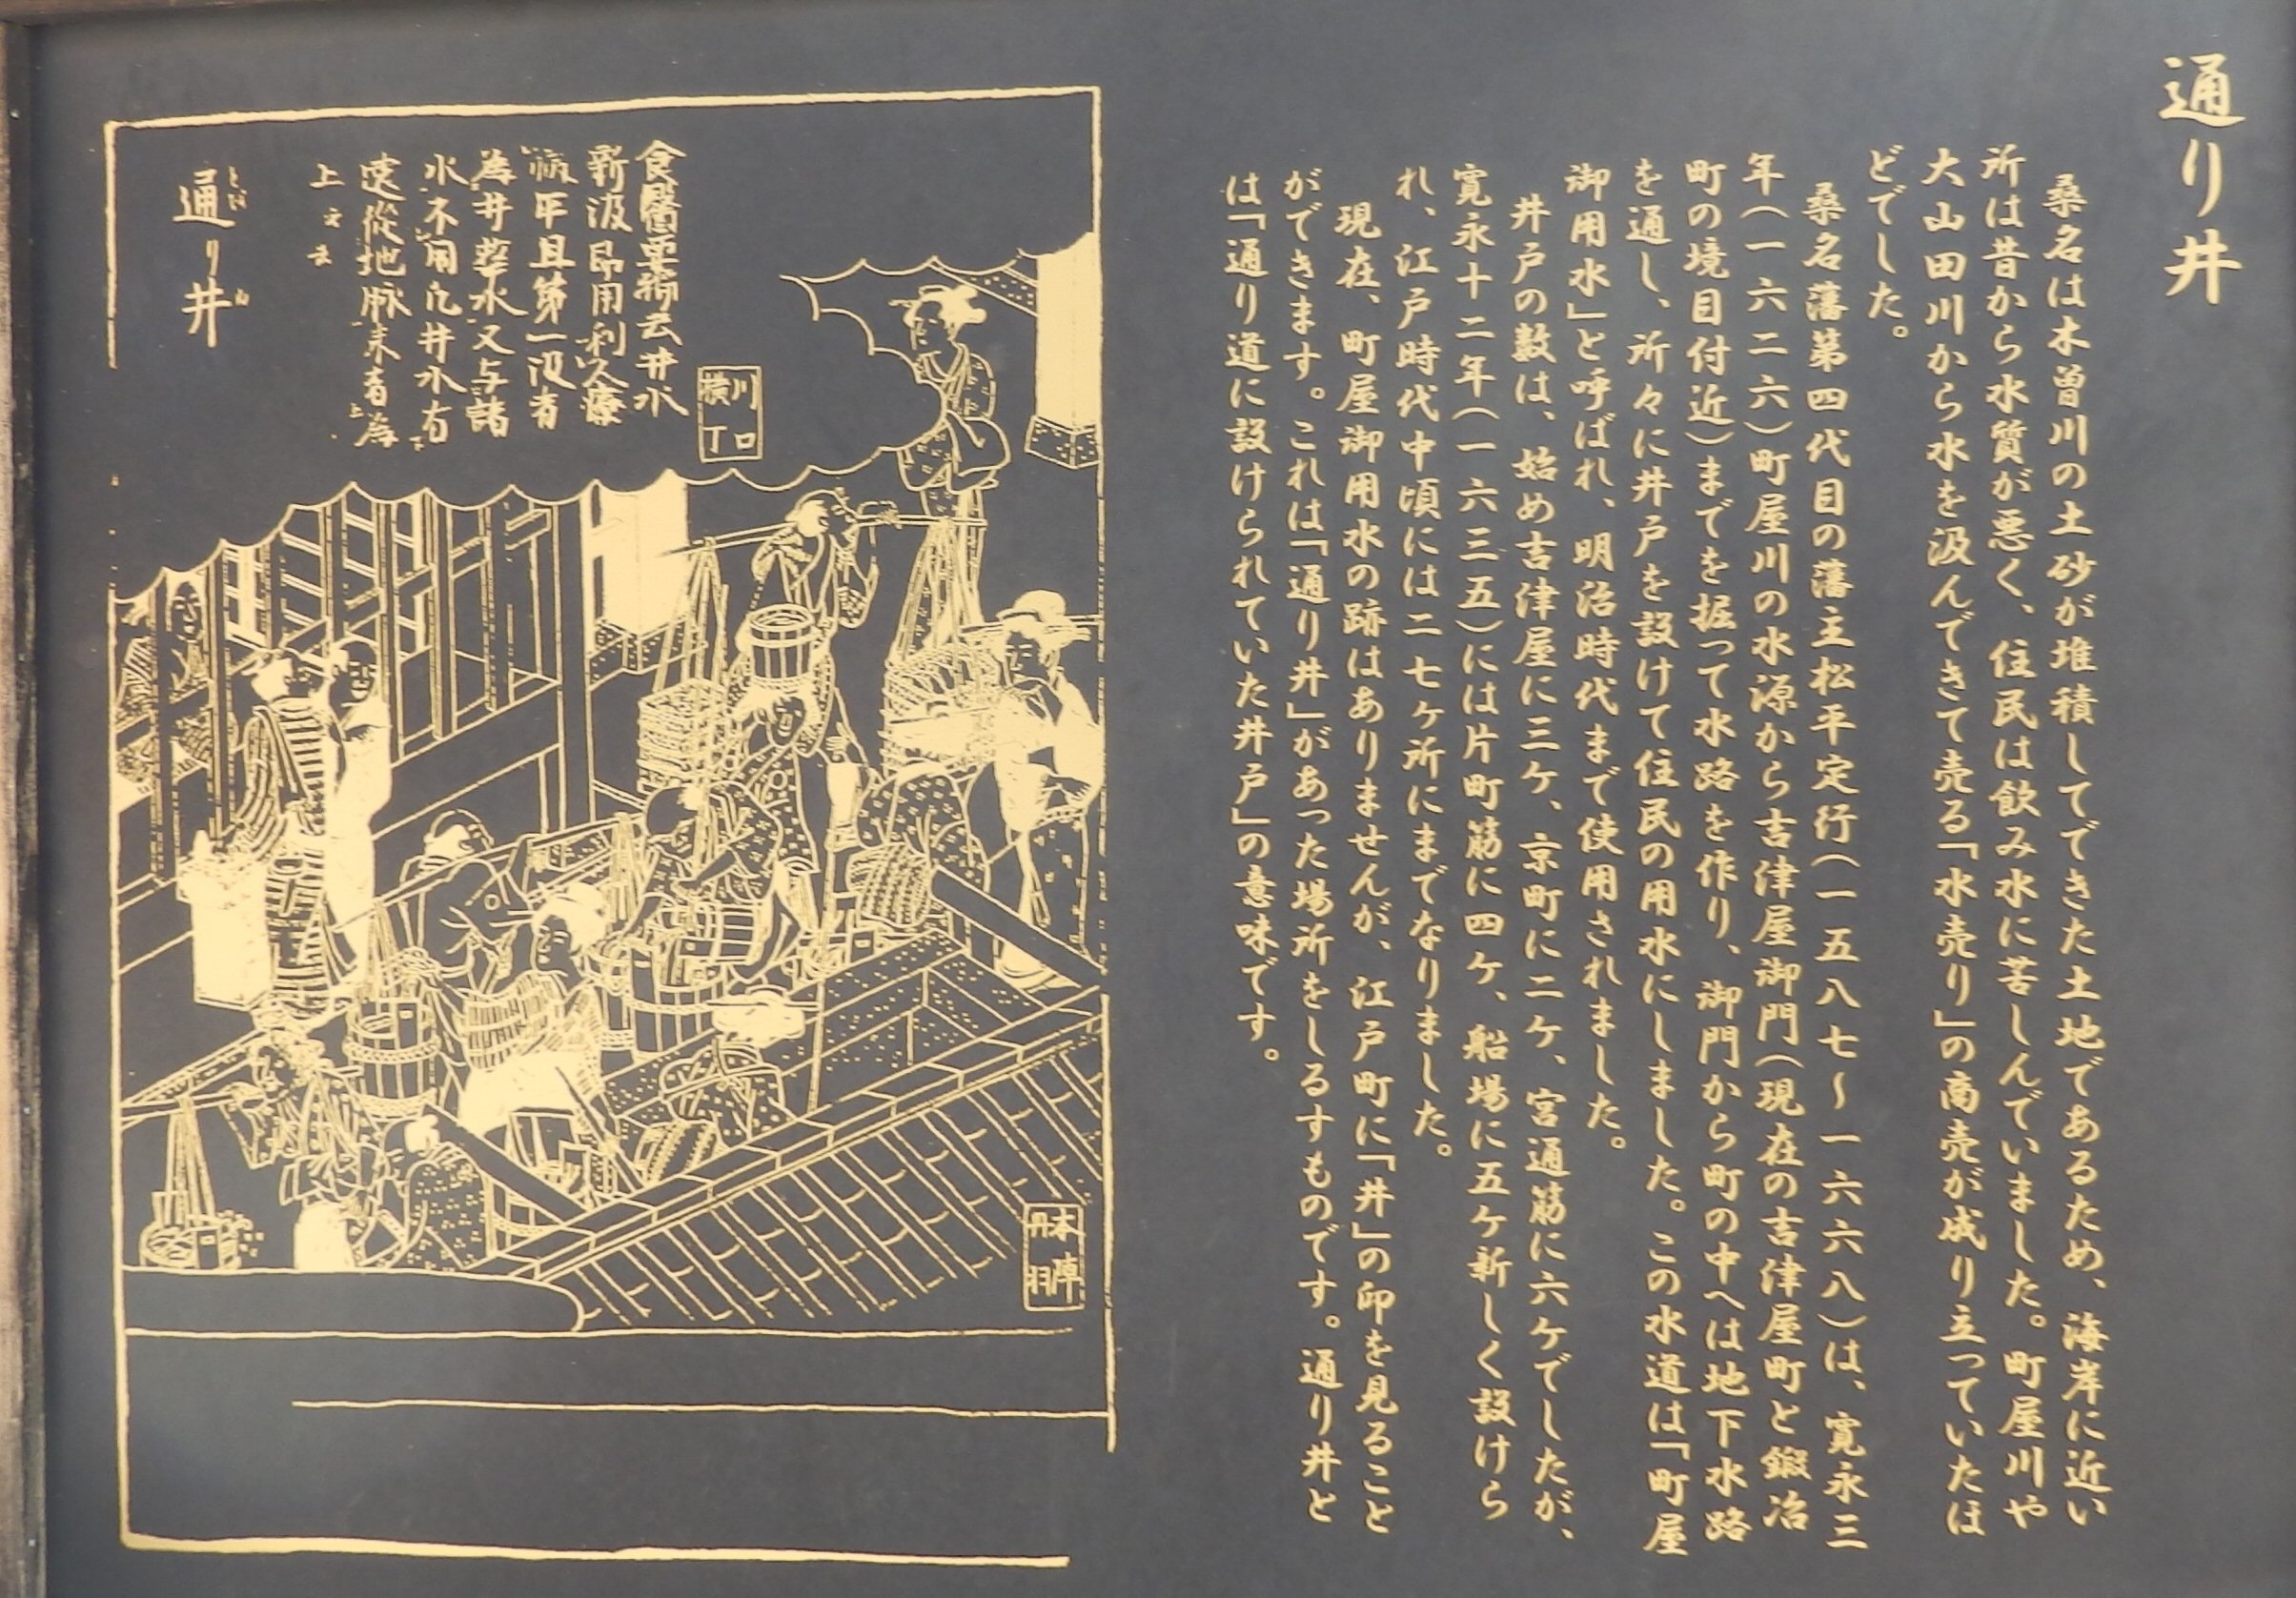 通り井
桑名は木曽川の土砂が堆積してできた土地であるため、海岸に近い
所は昔から水質が悪く、住民は飲み水に苦しんでいました。町屋川や
大山田川から水を汲んできて売る「水売り」の商売が成り立っていたほ
どでした。
桑名藩第四代目の藩主松平定行(一五八七～一六六八)は、寛永三
年(一六二六)町屋川の水源から吉津屋御門(現在の吉津屋町と鍛冶
町の境目付近)までを掘って水路を作り、御門から町の中へは地下水路
を通し、所々に井戸を設けて住民の用水にしました。この水道は「町屋
御用水」と呼ばれ、明治時代まで使用されました。
井戸の数は、始め吉津屋に三ケ、京町に二ケ、宮通筋に六ケでしたが、
寛永十二年(一六三五)には片町筋に四ケ、船場に五ケ新しく設けら
れ、江戸時代中頃には二七ケ所にまでなりました。
現在、町屋御用水の跡はありませんが、江戸町に「井」の印を見ること
ができます。これは「通り井」があった場所をしるすものです。通り井と
は「通り道に設けられていた井戸」の意味です。
食醫要編云井水
新汲即用利人療
病平旦第一汲者
為井華水又与諸
水不同凡井水有
遠從地脉来者為
上
通り井
川口
横丁
本陣
丹羽